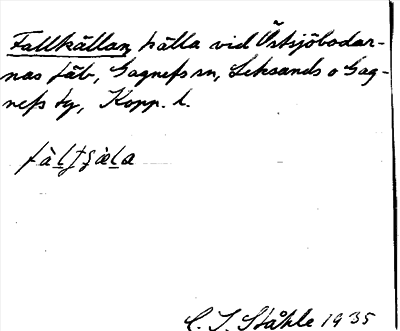 Fallkällan, källa vid Östsjöbodar-
nas fäb, Gagnefs sn, Leksands o Gag-
nefs tg, Kopp. l.
C. I. Ståhle 1935